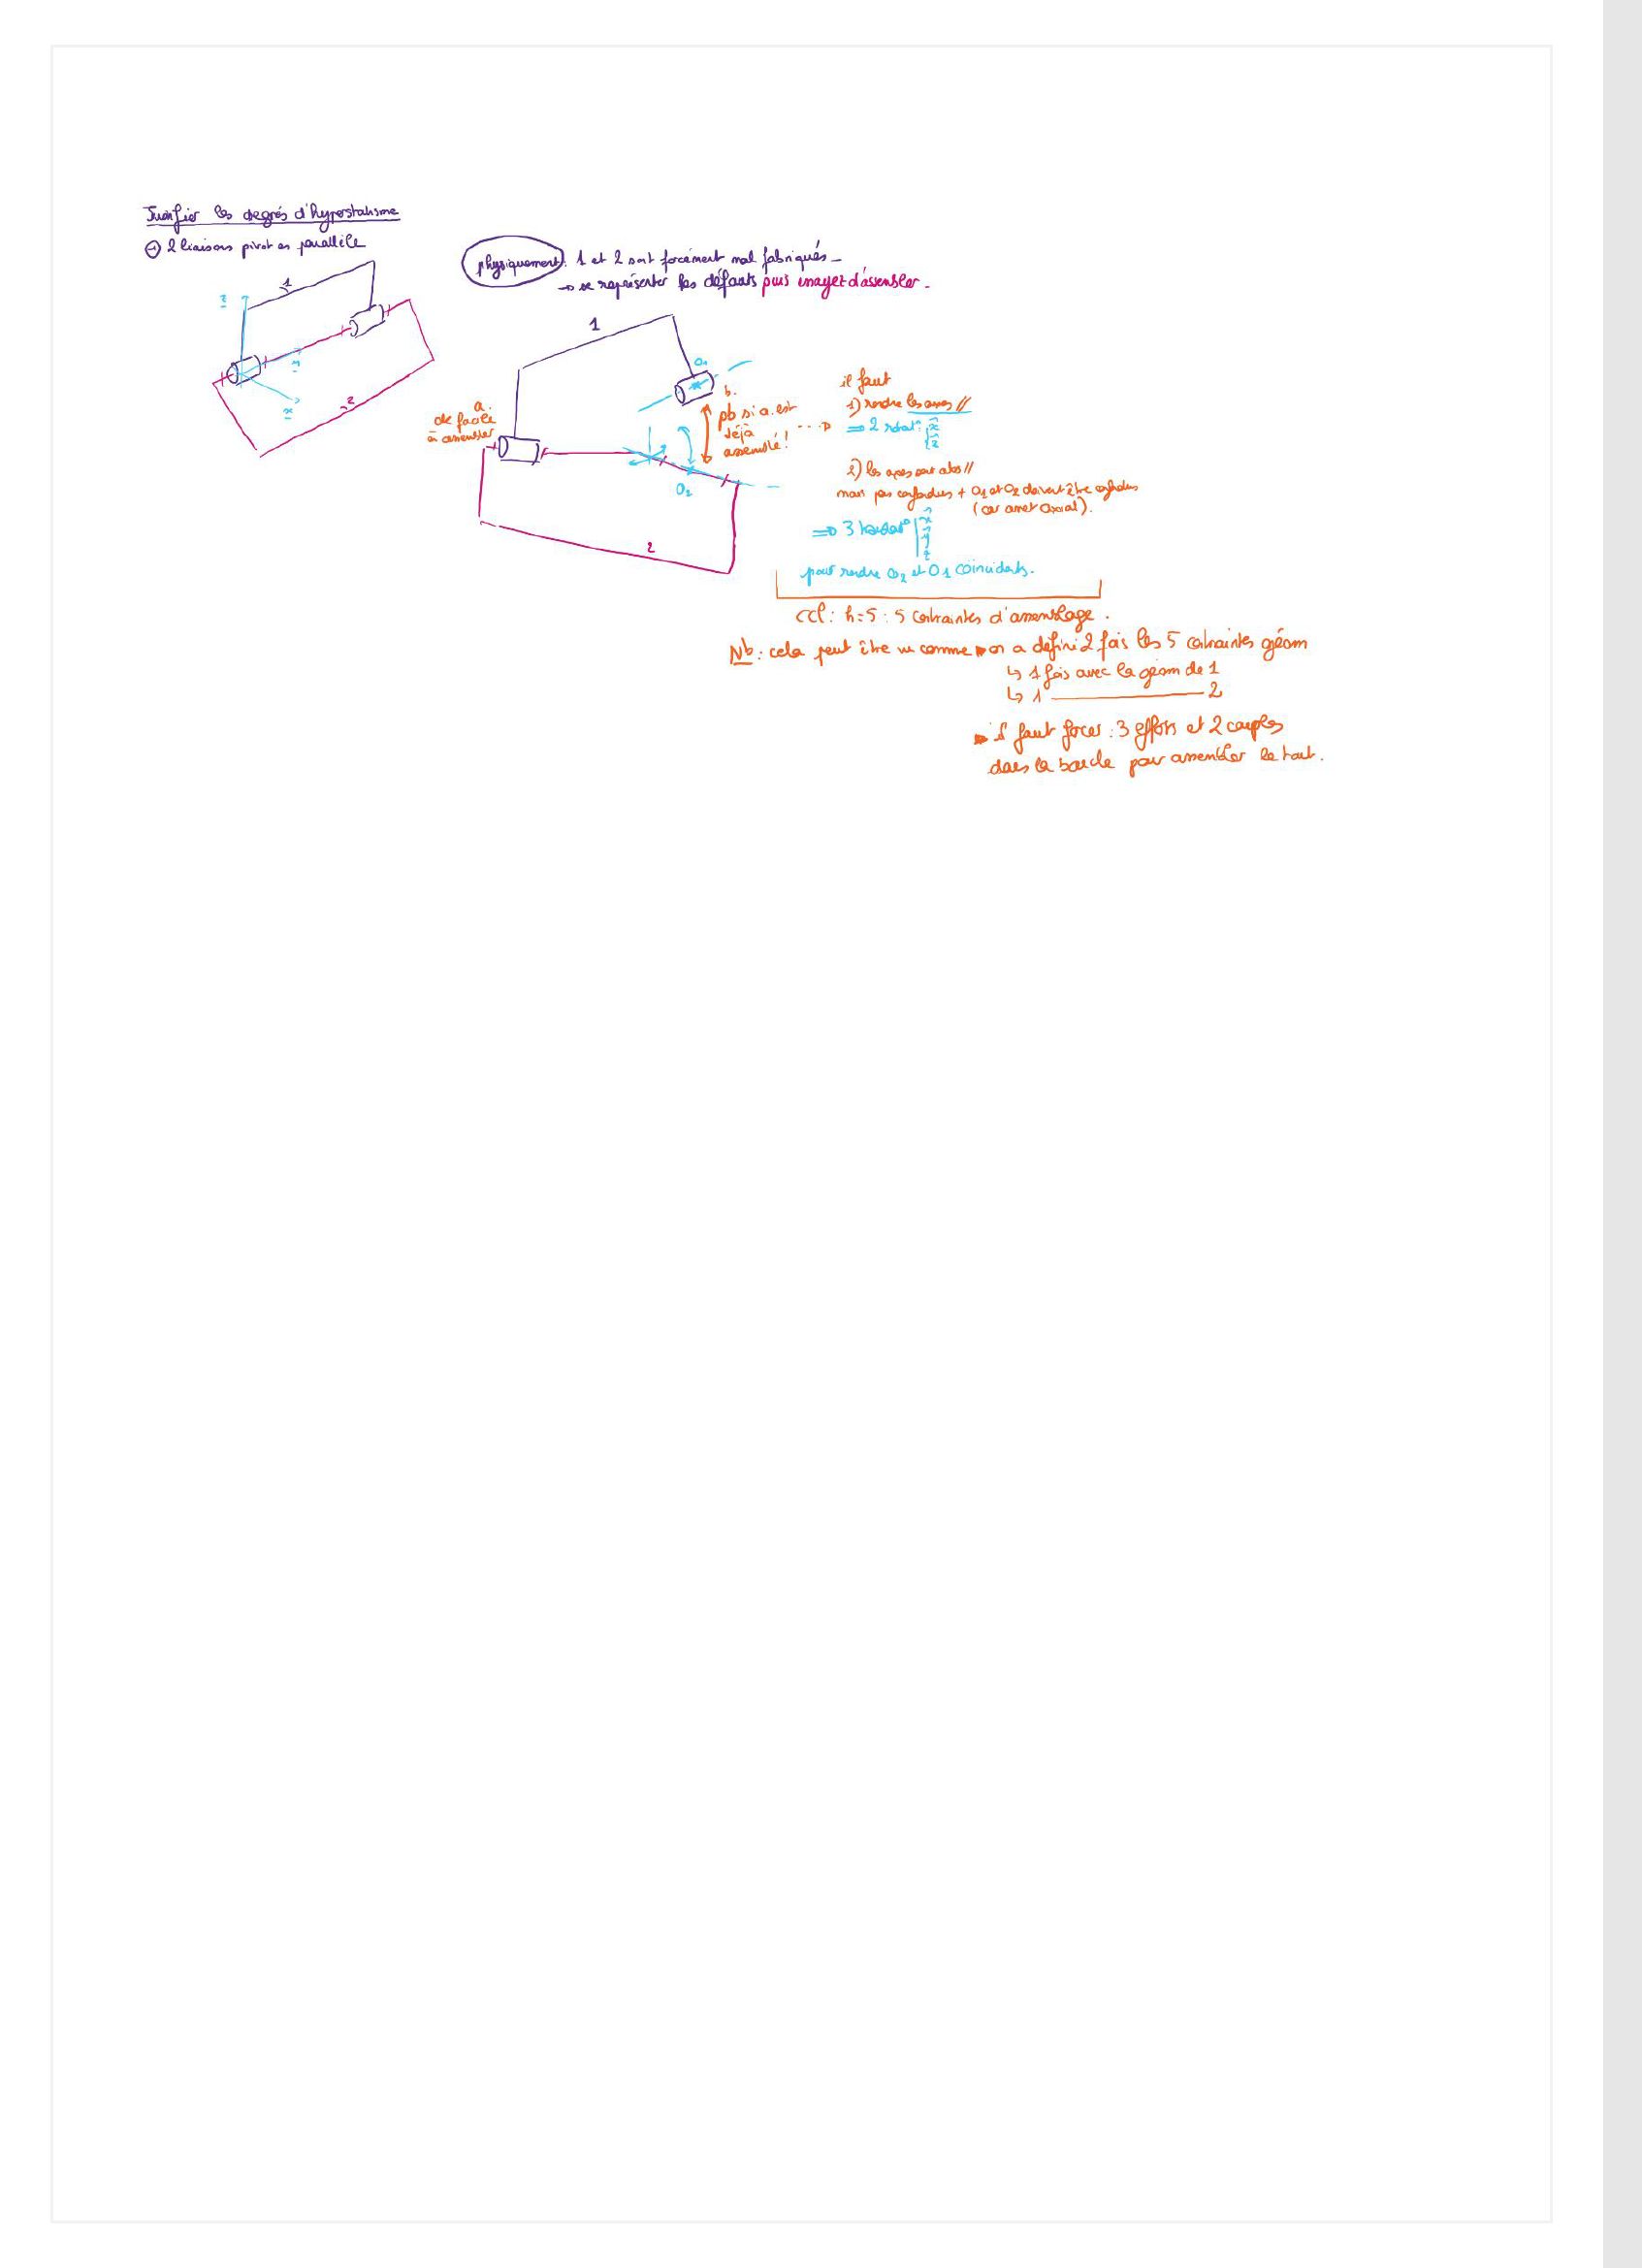 Justifier les degrés d'hyperstatisme
① 2 liaisons pivot en parallèle
physiquement : 1 et 2 sont forcément mal fabriqués
→ se représenter les défauts puis essayer d'assembler.
1
z
y
x
2
1
O1
b.
a.
ok facile
à assembler
pb si a. est
déjà
assemblé !
O2
2
il faut
1) rendre les axes //
⇒ 2 rotat° x z
2) les axes sont alors //
mais pas confondus + O1 et O2 doivent être confondus
(car arrêt axial).
⇒ 3 translat° x y z
pour rendre O2 et O1 coïncidents.
ccl : h=5 : 5 contraintes d'assemblage.
Nb : cela peut être vu comme on a défini 2 fois les 5 contraintes géom
↳ 1 fois avec la géom de 1
↳ 1 ——— 2
il faut forcer : 3 efforts et 2 couples
dans la boucle pour assembler le tout.